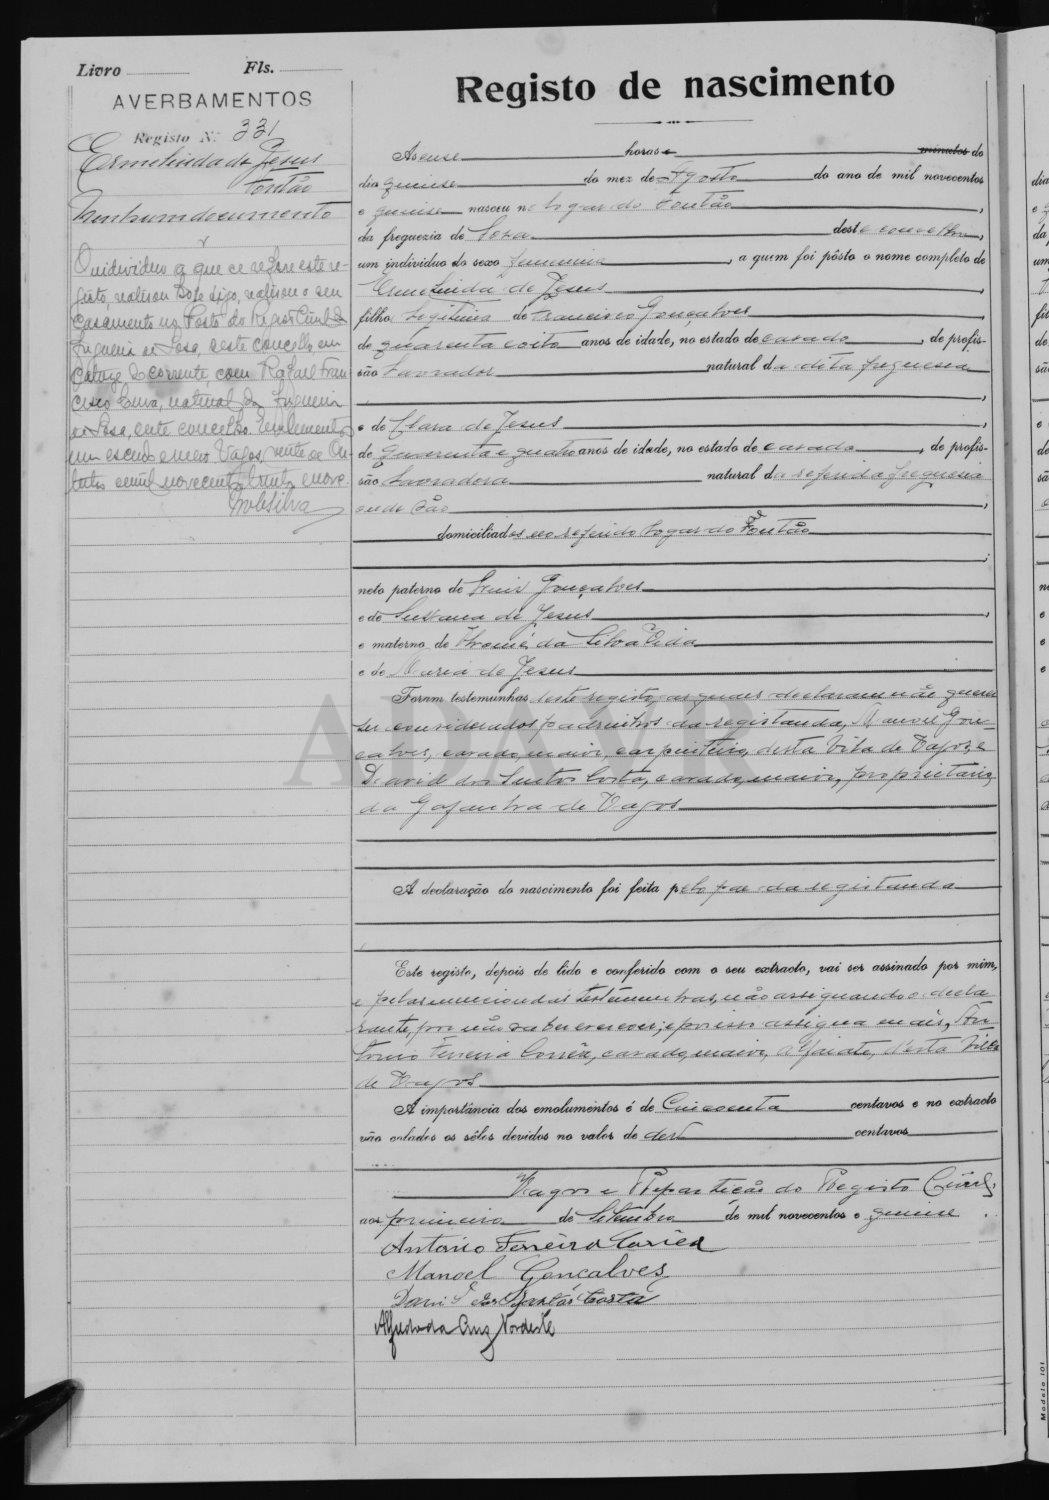 Livro Fls.
AVERBAMENTOS
Registo N.º 331
Ermelinda de Jesus
Fontão
Nenhum documento
O individuo a que se refere este re-
gisto, realisou hoje digo, realisou o seu
casamento no Posto do Registo Civil da
freguesia de Sosa, deste concelho em
catorze do corrente, com Rafael Fran-
cisco Cura, natural da freguesia
de Sosa, deste concelho. Emolumentos
um escudo e meio Vagos, vinte de Ou-
tubro de mil novecentos trinta e nove
Registo de nascimento
Ás onze horas e minutos do
dia quinse do mez de Agosto do ano de mil novecentos
e quinse nasceu no logar do Fontão,
da freguezia de Sosa deste concelho,
um individuo do sexo feminino, a quem foi pôsto o nome completo de
Ermelinda de Jesus,
filha legitima de Francisco Gonçalves
de quarenta e oito anos de idade, no estado de casado, de profis-
são Lavrador natural da dita freguesia
,
e de Clara de Jesus
de quarenta e quatro anos de idade, no estado de casada, de profis-
são Lavradora natural da referida freguesia
onde são,
domiciliados no referido logar do Fontão
;
neto paterno de Luis Gonçalves
e de Sustana de Jesus,
e materno de Thomé da Silva Vida
e de Maria de Jesus
Foram testemunhas deste registo, as quaes declararam não querer
ser considerados padrinhos da registanda, Manuel Gon-
çalves, casado, maior, carpinteiro, desta Vila de Vagos, e
David dos Santos Costa, casado, maior, proprietario,
da Gafanha de Vagos
A declaração do nascimento foi feita pelo pae da registanda
Este registo, depois de lido e conferido com o seu extracto, vai ser assinado por mim,
e pelas mencionadas testemunhas, não assignando o decla
rante, por não saber escrever; e por isso assigna mais, An
tonio Ferreira Corrêa, casado, maior, alfaiate, desta Villa
de Vagos
A importância dos emolumentos é de Cincoenta centavos e no extracto
vão colados os sêlos devidos no valor de dez centavos
Vagos e Repartição do Registo Civil,
aos primeiro de Setembro de mil novecentos e quinse.
Antonio Ferreira Corrêa
Manoel Gonçalves
David dos Santos Costa
Alfredo da Cruz Nordeste
ADAVR
Modelo 101